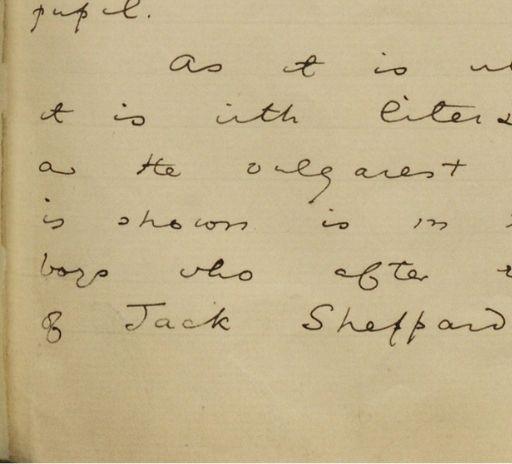 pupil.
As it is
it is with
as the vulgarest
is shown is in
boys who after
of Jack Sheppard